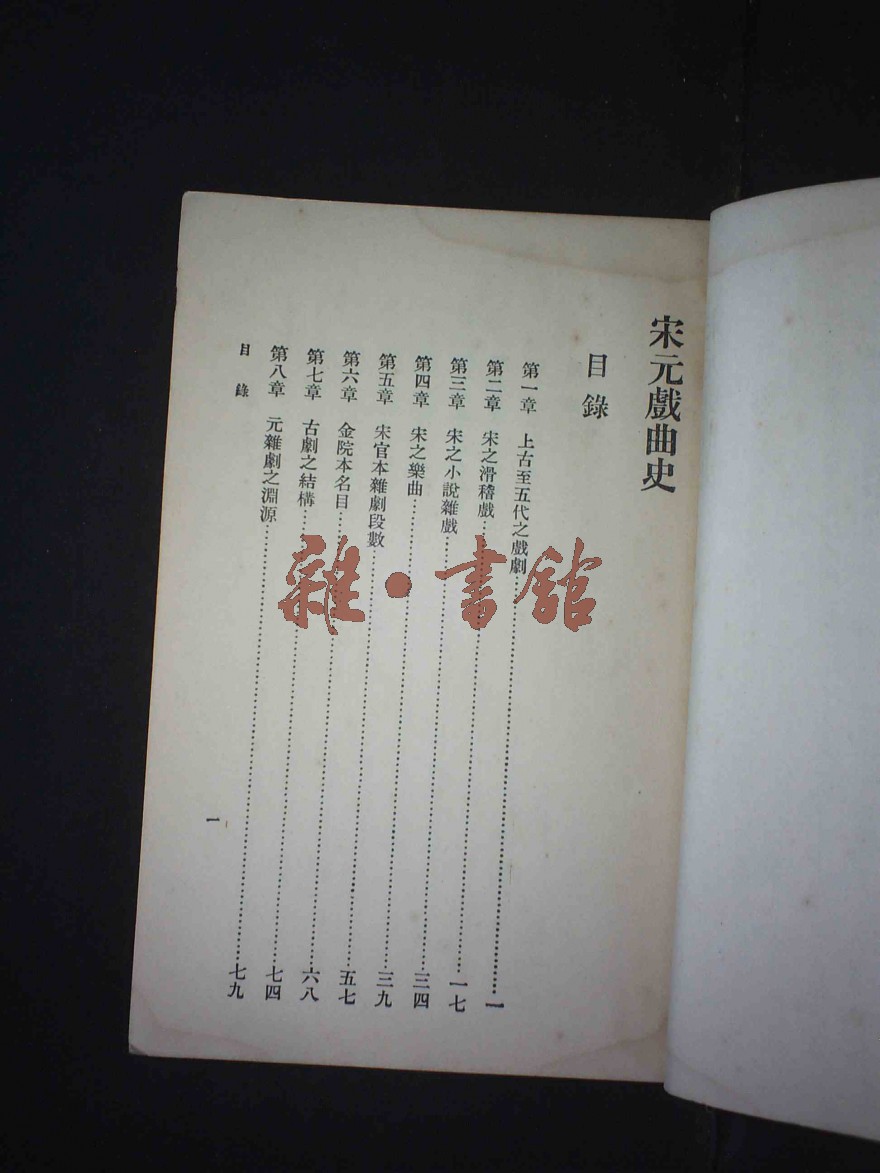 宋元戲曲史
目錄
第一章 上古至五代之戲劇……一
第二章 宋之滑稽戲……一七
第三章 宋之小說雜戲……三四
第四章 宋之樂曲……三九
第五章 宋官本雜劇段數……五七
第六章 金院本名目……六八
第七章 古劇之結構……七四
第八章 元雜劇之淵源……七九
目錄
一
雜·書館